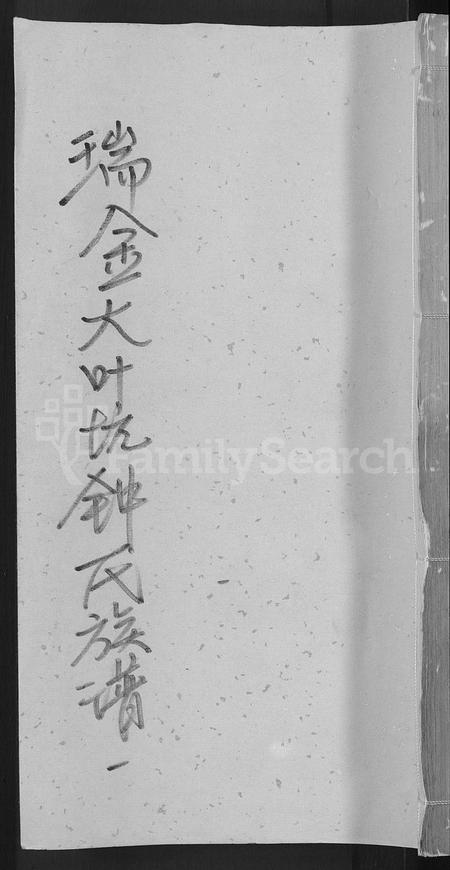 瑞金大叶坑钟氏族谱一
FamilySearch